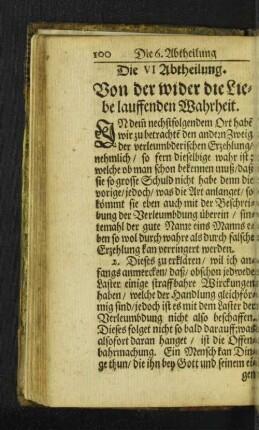 100 Die 6. Abtheilung
Die VI Abtheilung.
Von der wider die Lie-
be lauffenden Wahrheit.
IN dem̃ nechstfolgendem Ort habẽ
wir zu betrachtẽ den andern Zweig
der verleumbderischen Erzehlung/
nehmlich / so fern dieselbige wahr ist;
welche ob man schon bekennen muß/ daß
sie so grosse Schuld nicht habe denn die
vorige/ jedoch/ was die Art anlanget/ so
kömmt sie eben auch mit der Beschrei-
bung der Verleumbdung überein / sin-
temahl der gute Name eins Mannes e-
ben so wol durch wahre als durch falsche
Erzehlung kan verringert werden.
2. Dieses zu erklären / wil ich an-
fangs anmercken/ daß/ obschon jedwede
Laster einige straffbahre Wirckungen
haben / welche der Handlung gleichför-
mig sind/ jedoch ist es mit dem Laster der
Verleumbdung nicht also beschaffen.
Dieses folget nicht so bald darauff; was
alsofort daran hanget / ist die Offen-
bahrmachung. Ein Mensch kan Din-
ge thun/ die ihn bey Gott und seinem ei-
gen